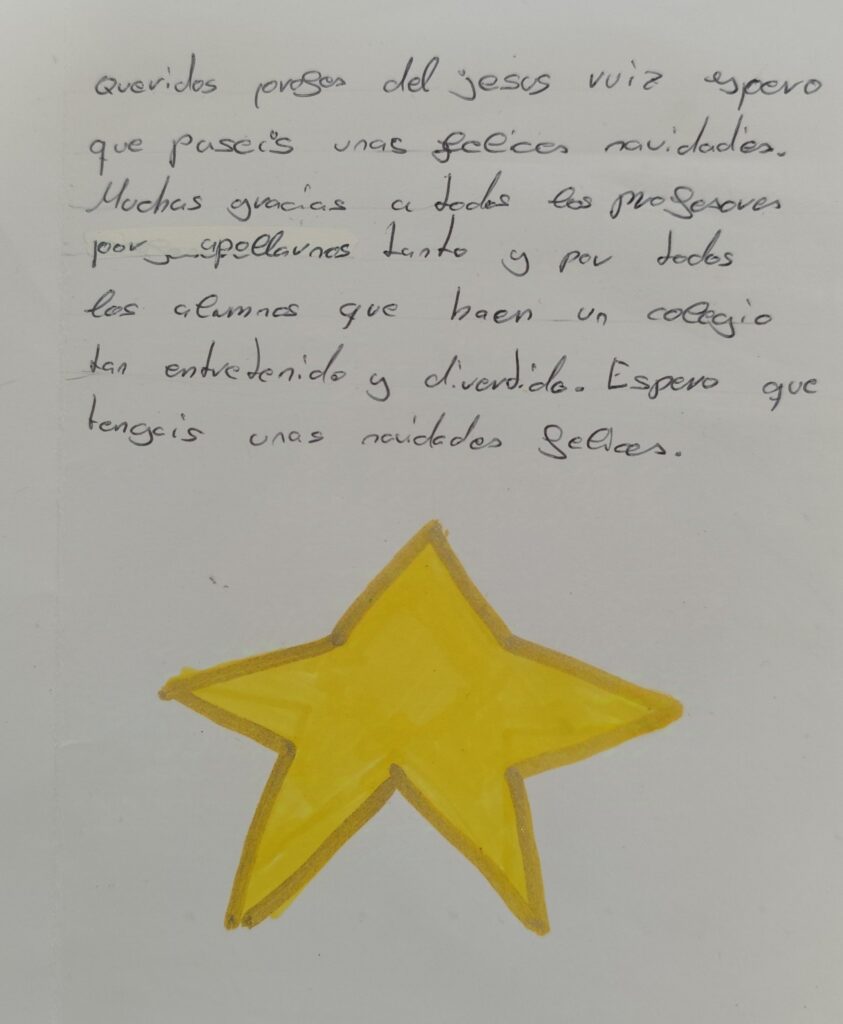 Queridos profes del jesus ruiz espero
que paseis unas felices navidades.
Muchas gracias a todos los profesores
por apollarnos tanto y por todos
los alumnos que haen un colegio
tan entretenido y divertido. Espero que
tengais unas navidades felices.